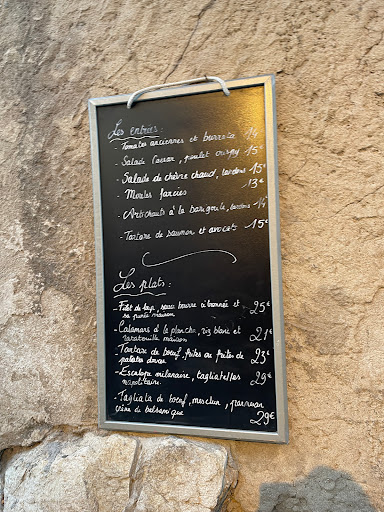 Les entrées :
- Tomates anciennes et burrata 14
- Salade Caesar, poulet crispy 15€
- Salade de chèvre chaud, lardons 15€
- Moules farcies 13€
- Artichauts à la barigoule, lardons 14€
- Tartare de saumon et avocats 15€
Les plats :
- Filet de loup, sauce beurre citronnée et
sa purée maison 25€
- Calamars à la plancha, riz blanc et
ratatouille maison 21€
- Tartare de boeuf, frites ou frites de
patates douces 23€
- Escalope milanaise, tagliatelles
napolitaine 29€
- Tagliata de boeuf, mesclun, parmesan
crème de balsamique 29€